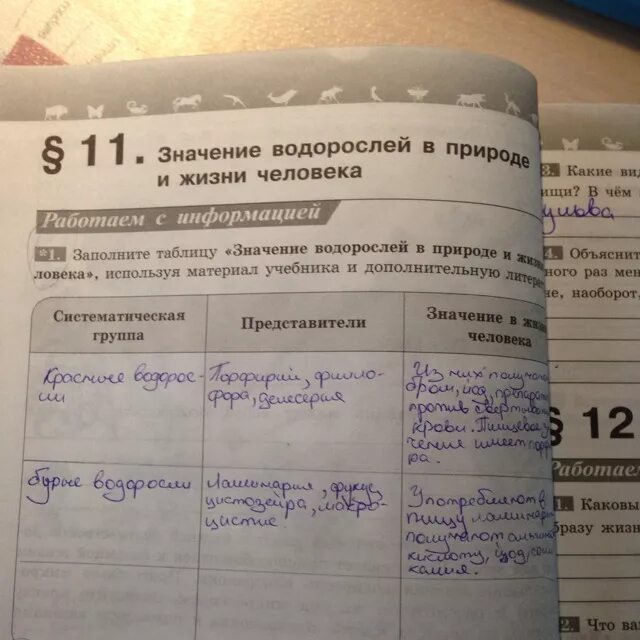 § 11. Значение водорослей в природе
и жизни человека
Работаем с информацией
*1. Заполните таблицу «Значение водорослей в природе и жизни
ловека», используя материал учебника и дополнительную литера
Систематическая
группа
Представители
Значение в жизни
человека
Красные водорос-
ли
Порфирий, филло-
фора, делесерия
Из них получают
бром, йод, препарат
против свертыван
крови. Пищевое
чение имеет порф
ра.
бурые водоросли
Ламинария, фукус,
цистозейра, макро-
цистис.
Употребляют в
пищу ламинар
получают
кислоту, йод, соли
калия.
3. Какие вид
ищи? В чём
ульва
4. Объяснит
ного раз мен
че, наоборот,
§ 12
Работаем
1. Каковы
бразу жизн
2. Что ва